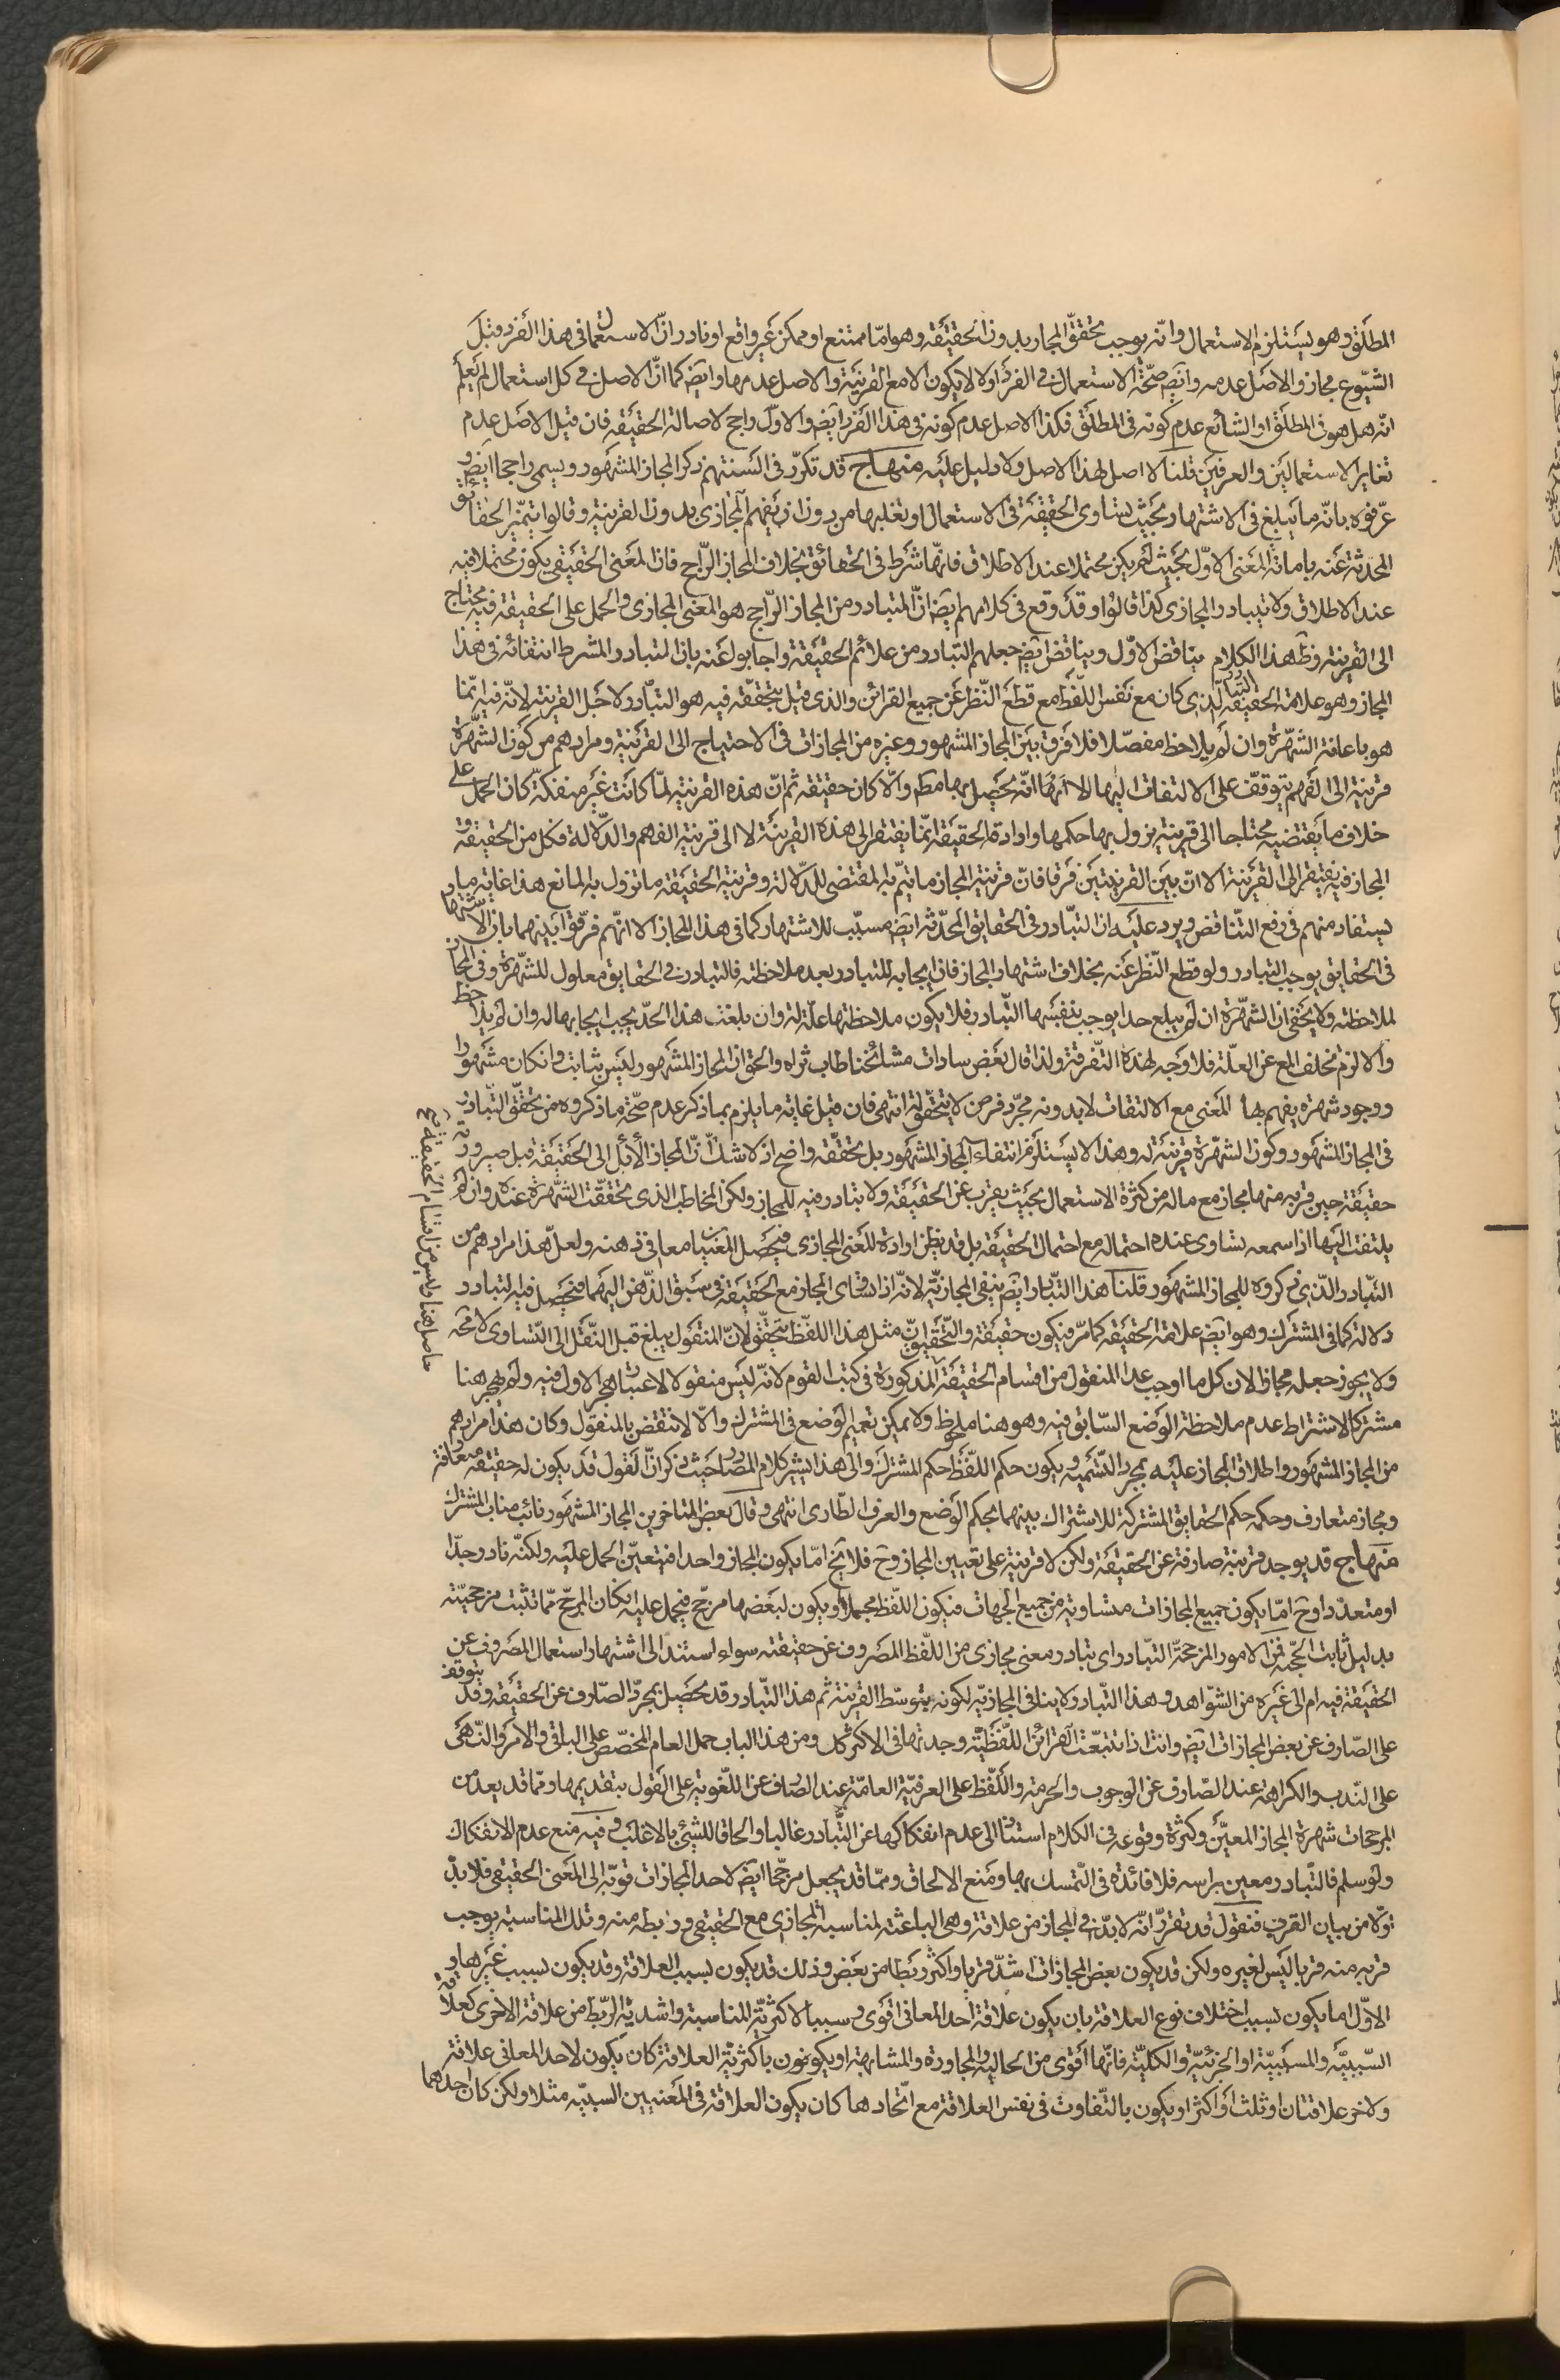 المطلق وهو يستلزم الاستعمال وانّه يوجب تحقق المجاز بدون الحقيقة وهو امّا ممتنع او ممكن غير واقع او نادر انّ الاستعمال فى هذا الفرد مثل
الشيوع مجاز والاصل عدمه وايضا صحّة الاستعمال فى الفرد اولا لا يكون الا مع القرينة والاصل عدمها وايضا كما انّ الاصل فى كل استعمال لم يعلم
انّه هل هو فى المطلق او الشائع عدم كونه فى المطلق فكذا الاصل عدم كونه فى هذا الفرد ايض والاوّل راجح لاصالة الحقيقة فان قيل الاصل عدم
تغاير الاستعمالين والعرفين قلنا لا اصل لهذا الاصل ولا دليل عليه منهاج قد تكرّر فى السنتهم ذكر المجاز المشهور ويسمى راجحا ايض و
عرّفوه بانّه ما يبلغ فى الاشتهار بحيث يساوى الحقيقة فى الاستعمال او تغلبها من دون ان يفهم المجازى بدون القرينة وقالوا يتميّز الحقائق
المحدثة عنه باماتة المعنى الاوّل بحيث لم يكن محتملا عند الاطلاق فانّها شرط فى الحقائق بخلاف المجاز الرّاجح فان المعنى الحقيقى يكون محتملا فيه
عند الاطلاق ولا يتبادر المجازى كذا قالوا وقد وقع فى كلامهم ايض انّ المتبادر من المجاز الرّاجح هو المعنى المجازى والحمل على الحقيقة فيه يحتاج
الى القرينة وظ هذا الكلام يناقض الاوّل ويناقض ايض جعلهم التبادر من علائم الحقيقة واجابوا عنه بان التبادر المشرط انتفائه فى هذا
المجاز وهو علامة الحقيقة التبادر الّذى كان مع نفس اللّفظ مع قطع النّظر عن جميع القرائن والذى قيل بتحقّقه فيه هو التبادر ولاجل القرينة لانّه فيه انّما
هو باعانة الشهّرة وان لم يلاحظ مفصّلا فلا فرق بين المجاز المشهور وغيره من المجازات فى الاحتياج الى القرينة ومرادهم من كون الشّهرة
قرينة الى الفهم يتوقف على الالتفات اليها لا انّها انّه يحصل بها مطم والّا كان حقيقة ثم انّ هذه القرينة لمّا كانت غير منفكّة كان الحمل على
خلاف ما يقتضيه محتاجا الى قرينة يزول بها حكمها وارادة الحقيقة انّما يفتقر الى هذه القرينة لا الى قرينة الفهم والدّلالة فكل من الحقيقة و
المجاز فيه يفتقر الى القرينة الا انّ بين القرينتين فرقا فانّ قرينة المجاز ما يتمّ به المقتضى للدّلالة وقرينة الحقيقة ما تزول به المانع هذا غاية ما
يستفاد منهم فى رفع التّناقض ويرد عليه ان التبادر فى الحقايق المحدثة ايض مسبّب للاشتهار كما فى هذا المجاز الا انّهم فرّقوا بينهما بان الاشتهار
فى الحقايق يوجب التبادر ولو قطع النّظر عنه بخلاف اشتهار المجاز فان ايجابه للتبادر بعد ملاحظته فالتبادر فى الحقايق معلول للشّهرة وفى المجاز
لملاحظته ولا يخفى ان الشهّرة ان لم يبلغ حدا يوجب بنفسها التبادر فلا يكون ملاحظتها علّة له وان بلغت هذا الحدّ يجب ايجابها له وان لم يلاحظ
والا لزم تخلف المع عن العلّة فلا وجه لهذه التّفرقة ولذا قال بعض سادات مشائخنا طاب ثراه والحق ان المجاز المشهور ليس بثابت وان كان مشهورا
ووجود شهرة يفهم بها المعنى مع الالتفات لا بدونه مجرّد فرض لا يتحقّق له انتهى فان قيل غاية ما يلزم بما ذكر عدم صحّة ما ذكروه من تحقّق التبادر
فى المجاز المشهور وكون الشهّرة قرينة له وهذا لا يستلزم انتفاء المجاز المشهور بل تحقّقه واضح اذ لا شك انّ المجاز الآئل الى الحقيقة قبل صيرورته
حقيقة حين قربه منها مجاز مع ماله من كثرة الاستعمال بحيث يقرب عن الحقيقة ولا يتبادر منه للمجاز ولكن المخاطب الذى تحققت الشّهرة عنده وان لم
يلتفت اليها اذا سمعه تساوى عنده احتماله مع احتمال الحقيقة بل قد يظن ارادة المعنى المجازى فيحصل المعنيان معا فى ذهنه ولعلّ هذا مرادهم من
التبادر الّذى ذكروه للمجاز المشهور قلنا هذا التبادر ايض ينفى المجازيّة لانّه اذا تساوى المجاز مع الحقيقة فى سبق الذّهن اليهما فيحصل فيه التبادر
دلالة كما فى المشترك وهو ايض علامة الحقيقة كما مرّ فيكون حقيقة والتحقيق انّ مثل هذا اللفظ يتحقق لانّ المنقول يبلغ قبل النّقل الى التّساوى لا محه
ولا يجوز جعله مجازا لان كل ما اوجب عدّ المنقول من اقسام الحقيقة المذكورة فى كتب القوم لانّه ليس منقولا لاعتبار هجر الاول فيه ولم يهجر هنا
مشتركا لاشتراط عدم ملاحظة الوضع السّابق فيه وهو هنا ملحوظ ولا يمكن تعميم الوضع فى المشترك والّا لانتقض بالمنقول وكان هذا مرادهم
من المجاز المشهور واطلاق المجاز عليه بمجرد التّسمية ويكون حكم اللّفظ حكم المشترك والى هذا يشير كلام المص حيث ذكر انّ القول قد يكون له حقيقة متعارفة
ومجاز متعارف وحكمه حكم الحقايق المشتركة للاشتراك بينهما بحكم الوضع والعرف الطّارى انتهى وقال بعض المتاخرين المجاز المشهور نائب مناب المشترك
منهاج قد يوجد قرينة صارفة عن الحقيقة ولكن لا قرينة على تعيين المجاز وح فلا يخ امّا يكون المجاز واحدا فيتعيّن الحمل عليه ولكنّه نادر جدّا
او متعدّدا وح امّا يكون جميع المجازات متساوية من جميع الجهات فيكون اللّفظ مجملا او يكون لبعضها مرجّح فيحمل عليه ان كان المرجّح ممّا تثبت مرجحيّته
بدليل ثابت الحجّية فمن الامور المرجحة التبادر اى تبادر معنى مجازى من اللّفظ المصروف عن حقيقته سواء استند الى اشتهار استعمال المصروف عن
الحقيقة فيه ام الى غيره من الشّواهد وهذا التّبادر لا ينافى المجازيّة لكونه بتوسّط القرينة ثم هذا التّبادر قد يحصل بمجرّد الصّارف عن الحقيقة وقد يتوقف
على الصّارف عن بعض المجازات ايض وانت اذا تتبعّت القرائن اللّفظيّة وجدتها فى الاكثر كل ومن هذا الباب حمل العام المخصّص على الباقى والامر والنّهى
على النّدب والكراهة عند الصّارف عن الوجوب والحرمة واللّفظ على العرفيّة العامّة عند الصارف عن اللّغوية على القول بتقديمها وممّا قد يعد من
المرجحات شهرة المجاز المعيّن وكثرة وقوعه فى الكلام استنادا الى عدم انفكاكها عن التّبادر غالبا والحاقا للشيئ بالاغلب وفيه منع عدم الانفكاك
ولو سلم فالتّبادر معين براسه فلا فائدة فى التّمسك بها ومنع الالحاق وممّا قد يجعل مرجّحا ايض لاحد المجازات قوّته الى المعنى الحقيقى فلا بدّ
اوّلا من بيان القرب فنقول قد تقرّر انّه لا بدّ فى المجاز من علاقة وهى الباعثة لمناسبة المجازى مع الحقيقى وربطه منه وتلك المناسبة يوجب
قربه منه قربا ليس لغيره ولكن قد يكون بعض المجازات اشدّ قربا واكثر ربطا من بعض وذلك قد يكون بسبب العلاقة وقد يكون بسبب غيرها و
الاوّل اما يكون بسبب اختلاف نوع العلاقة بان يكون علاقة احد المعانى اقوى وسببا لاكثريّة المناسبة واشديّة الرّبط من علاقة الاخرى كعلاقة
السّببيّة والمسبّبيّة او الجزئيّة والكليّة فانّها اقوى من الحاليّة والمجاورة والمشابهة او يكون باكثريّة العلاقة كان يكون لاحد المعانى علاقة
ولاخر علاقتان او ثلث او اكثر او يكون بالتّفاوت فى نفس العلاقة مع اتّحادها كان يكون العلاقة فى المعنيين السببيّة مثلا ولكن كان احدهما
حاصل هنا وليس من اقسام الحقيقة